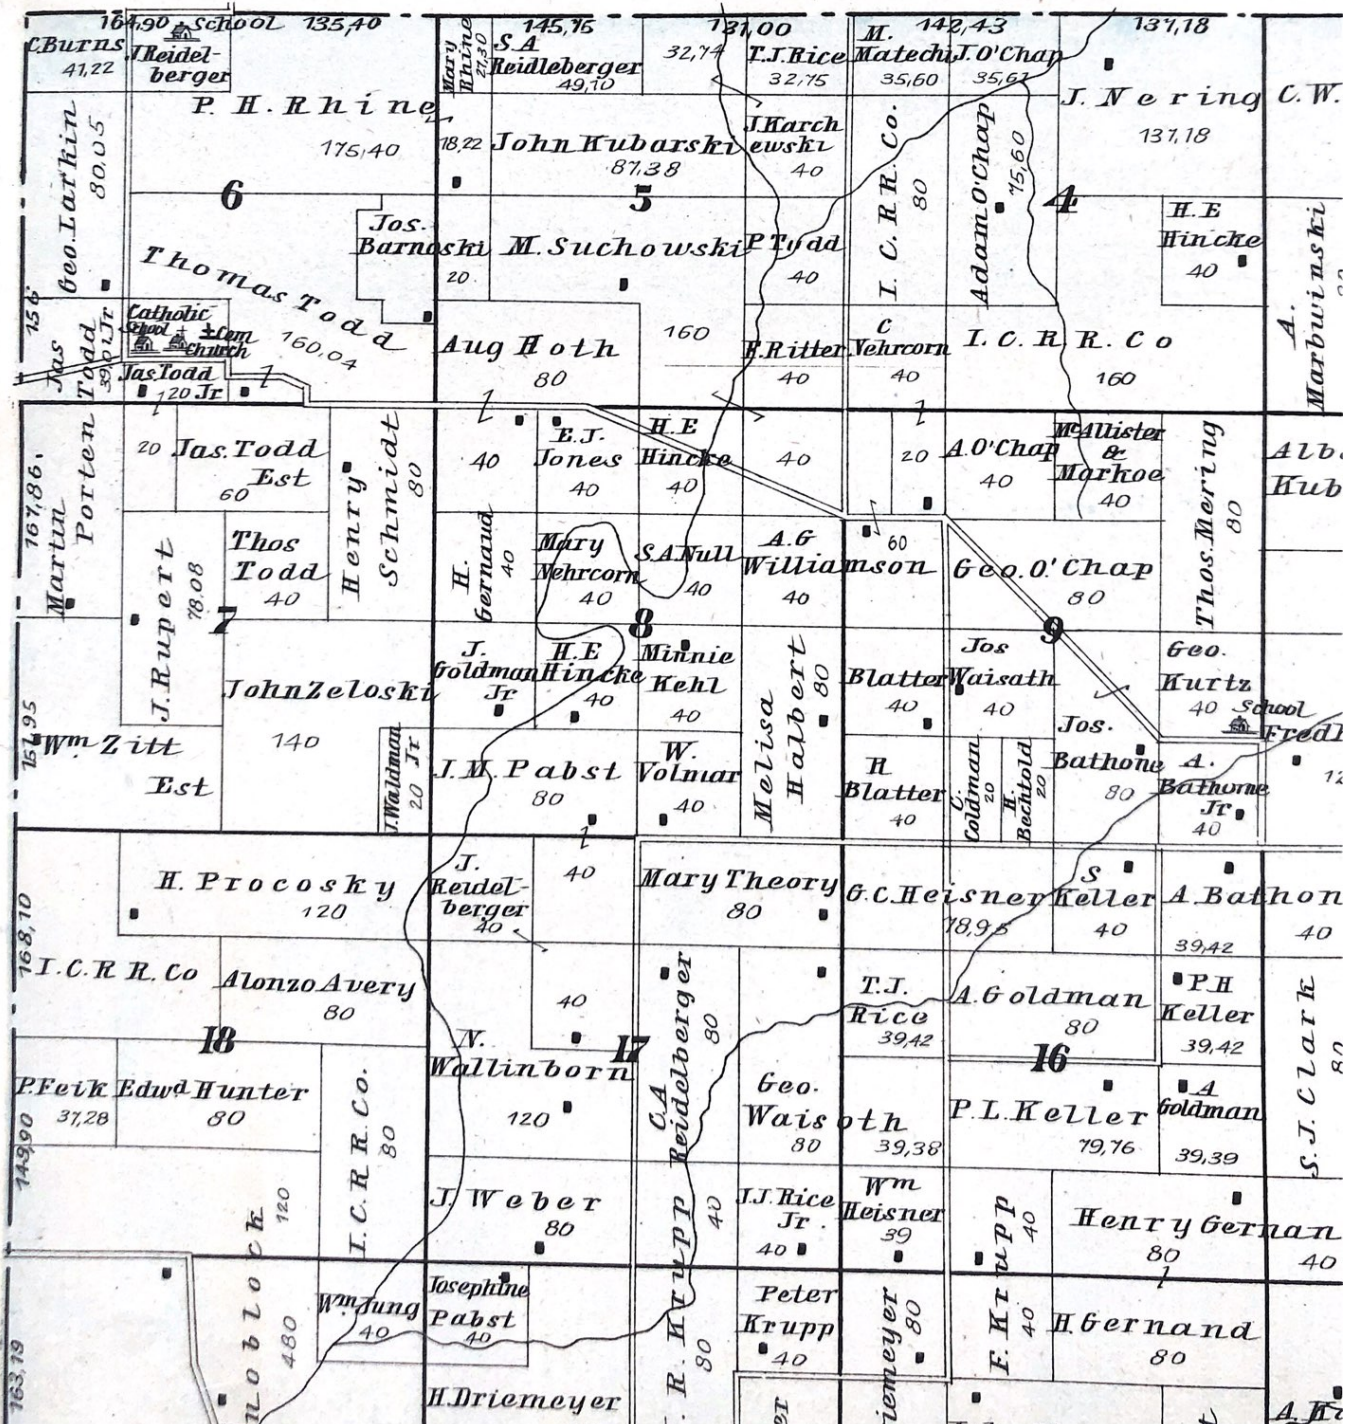 164,90 School 135,40
145,75
131,00
142,43
137,18
C. Burns
41,22
J. Reidel-
berger
P. H. Rhine
175,40
Mary
Rhine
27,30
S. A
Reidleberger
49,10
32,74
T. J. Rice
32,75
M.
Matechi
35,60
J. O'Chap
35,61
J. Nering
137,18
C. W.
Geo. Larkin
80.05
18,22
John Kubarski
87,38
J. Karch
ewski
40
I. C. R R. Co.
80
Adam O'Chap
75,60
6
5
4
Jos.
Barnoski
20
M. Suchowski
160
P Todd
40
H. E
Hincke
40
A.
Marbuwinski
Thomas Todd
160,04
156
Catholic
School
Cem
Church
Jas
Porten Todd
39,01 Jr
Jas Todd
20 Jr
Aug Hoth
80
F. Ritter
40
C
Nehrcorn
40
I. C. R R. Co
160
167,86.
Martin
20
Jas. Todd
Est
60
Henry
Schmidt
80
40
E. J.
Jones
40
H. E
Hincke
40
40
20
A. O'Chap
40
McAllister
&
Markoe
40
Thos. Mering
80
Alb.
Kub
J. Rupert
78.08
Thos
Todd
40
H.
Gernaud
40
Mary
Nehrcorn
40
S. A. Null
40
A. G
Williamson
40
60
Geo. O.' Chap
80
7
8
9
151,95
Wm Zitt
Est
John Zeloski
140
J. Waldman
20 Jr
J.
Goldman
Jr
H. E
Hincke
40
Minnie
Kehl
40
Melisa
Halbert
80
Blatter
40
Jos
Waisath
40
Geo.
Kurtz
40
School
Fred
12
J. M. Pabst
80
W.
Volmar
40
H
Blatter
40
C.
Coldman
20
H.
Bechtold
20
Jos.
Bathone
80
A.
Bathorne
Jr
40
168,10
H. Procosky
120
J.
Reidel-
berger
40
40
Mary Theory
80
G. C. Heisner
78,95
S
Keller
40
A. Bathon
39,42
40
I. C. R R. Co
Alonzo Avery
80
40
C. A
Reidelberger
80
T. J.
Rice
39,42
A. Goldman
80
P. H
Keller
39,42
S. J. Clark
80
18
17
16
149,90
P. Feik
37,28
Edwd Hunter
80
I. C. R R. Co.
80
N.
Wallinborn
120
Geo.
Waisoth
80
39,38
P. L. Keller
79,76
A
Goldman
39,39
120
J. Weber
80
R. Krupp
40
J. J. Rice
Jr.
40
Wm
Heisner
39
F. Krupp
40
Henry Gernan
80
40
163,19
noblock
480
Wm Jung
40
Josephine
Pabst
40
80
Peter
Krupp
40
iemeyer
80
40
H. Gernand
80
H. Driemeyer
er